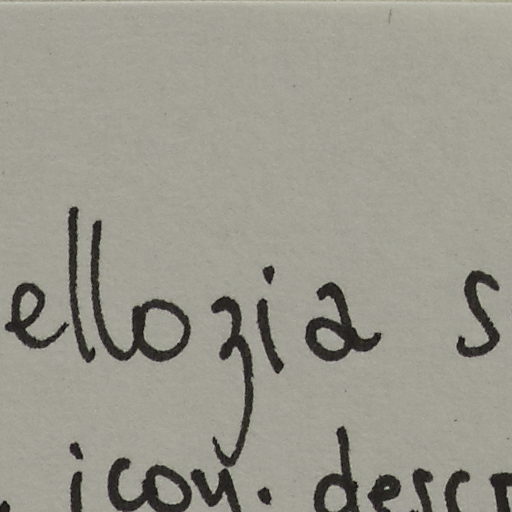 ellozia s
. icon. descr